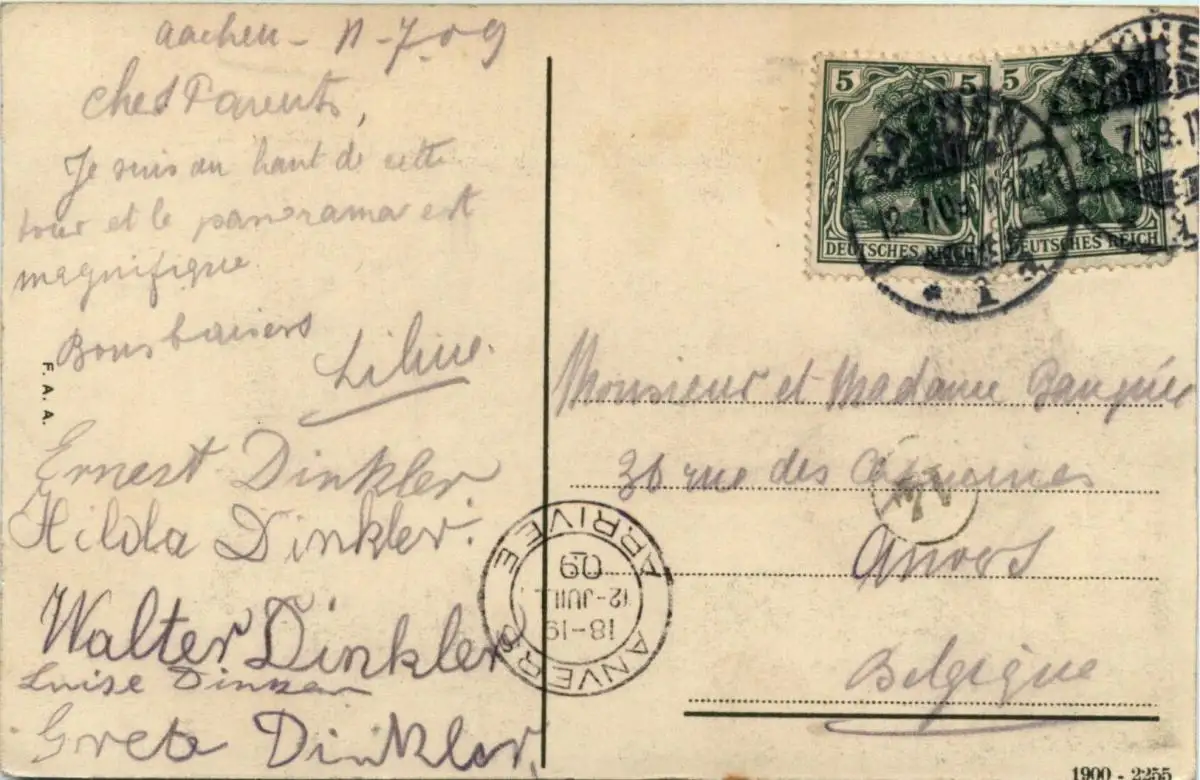 Aachen - 11-7-09
Chers Parents,
Je suis au haut de cette
tour et le panorama est
magnifique
Bons baisers
F. A. A.
Ernest Dinkler
Hilda Dinkler.
Walter Dinkler
Luise Dinkler
Grete Dinkler.
5 5 5
DEUTSCHES REICH DEUTSCHES REICH
AACHEN
12.7.09.11
* 1
12.7.09.11
Monsieur et Madame
36 rue des
Anvers
Belgique
ANVERS
18-19
12-JUIL
09
ARRIVEE
1900 - 2255